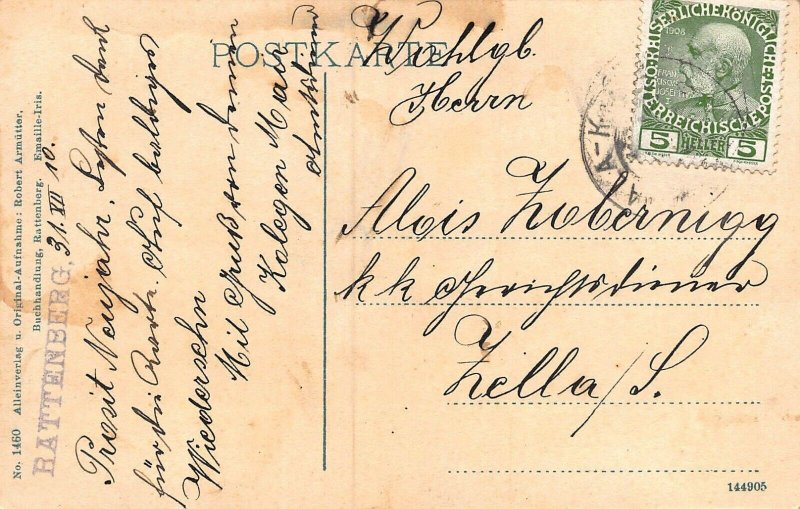 POSTKARTE
No. 1460 Alleinverlag u. Original-Aufnahme: Robert Armütter,
Buchhandlung, Rattenberg. Emaille-Iris.
RATTENBERG, 31. XII 10.
Prosit Neujahr. Besten Dank
für die Karte. Auf baldiges
Wiedersehn
Mit Gruß von deinem
Kolegen Mair
Wohlgb.
Herrn
Alois Zobernigg
k k Gerichtsdiener
Zell a/S.
KAISERLICHE KÖNIGLICHE
ÖSTERREICHISCHE POST
1908
FRANZ
JOSEF I
5 HELLER 5
144905